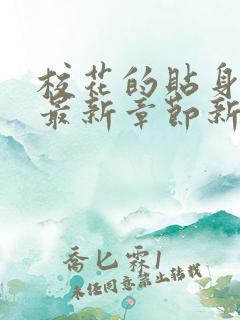 校花的贴身
最新章节新
乔匕霖1
未经同意禁止转载